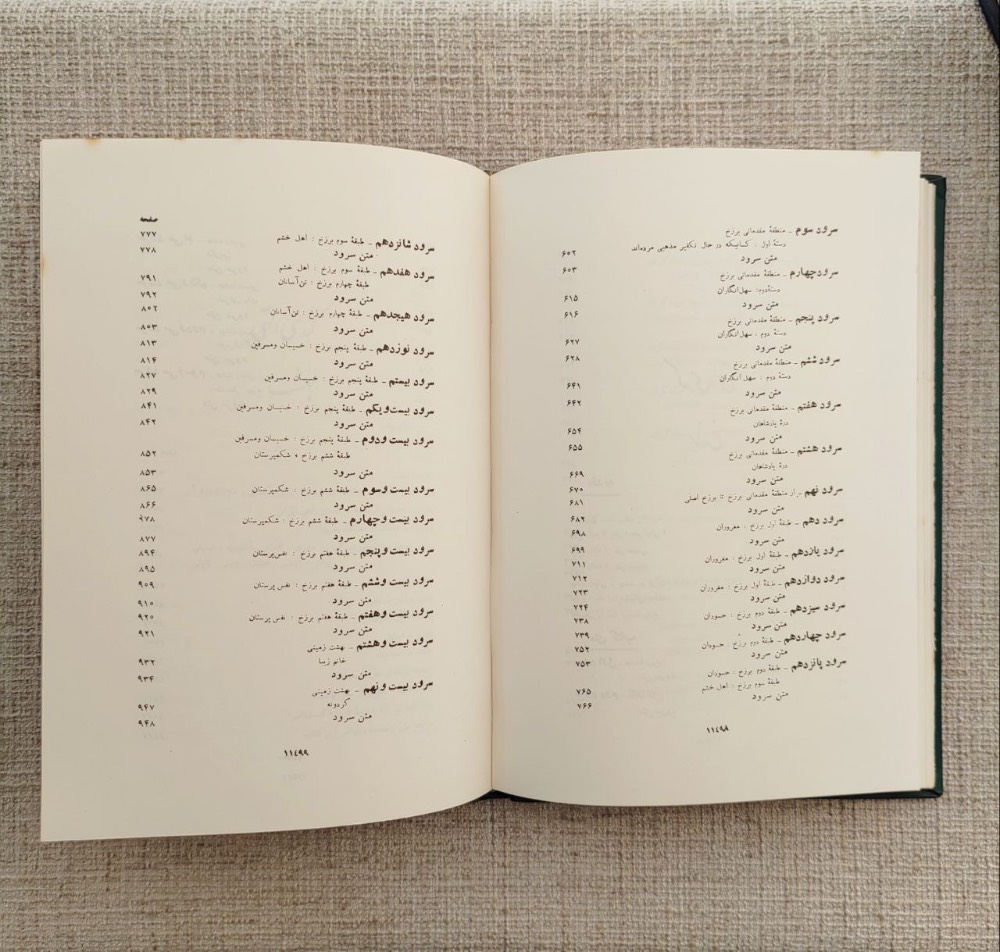 سرود سوم - منطقهٔ مقدماتی برزخ
دستهٔ اول : کسانیکه در حال تکفیر مذهبی مرده‌اند ۶۰۲
متن سرود ۶۰۳
سرود چهارم - منطقهٔ مقدماتی برزخ
دستهٔ دوم: سهل‌انگاران ۶۱۵
متن سرود ۶۱۶
سرود پنجم - منطقهٔ مقدماتی برزخ
دستهٔ دوم : سهل‌انگاران ۶۲۷
متن سرود ۶۲۸
سرود ششم - منطقهٔ مقدماتی برزخ
دستهٔ دوم : سهل‌انگاران ۶۴۱
متن سرود ۶۴۲
سرود هفتم - منطقهٔ مقدماتی برزخ
درهٔ پادشاهان ۶۵۴
متن سرود ۶۵۵
سرود هشتم - منطقهٔ مقدماتی برزخ
درهٔ پادشاهان ۶۶۹
متن سرود ۶۷۰
سرود نهم - از منطقهٔ مقدماتی برزخ تا برزخ اصلی ۶۸۱
متن سرود ۶۸۲
سرود دهم - طبقهٔ اول برزخ : مغروران ۶۹۸
متن سرود ۶۹۹
سرود یازدهم - طبقهٔ اول برزخ : مغروران ۷۱۱
متن سرود ۷۱۲
سرود دوازدهم - طبقهٔ اول برزخ : مغروران ۷۲۳
متن سرود ۷۲۴
سرود سیزدهم - طبقهٔ دوم برزخ : حسودان ۷۳۸
متن سرود ۷۳۹
سرود چهاردهم - طبقهٔ دوم برزخ : حسودان ۷۵۲
متن سرود ۷۵۳
سرود پانزدهم - طبقهٔ دوم برزخ : حسودان
طبقهٔ سوم برزخ : اهل خشم ۷۶۵
متن سرود ۷۶۶
۱۱٤۹۸
صفحه
سرود شانزدهم - طبقهٔ سوم برزخ : اهل خشم ۷۷۷
متن سرود ۷۷۸
سرود هفدهم - طبقهٔ سوم برزخ : اهل خشم
طبقهٔ چهارم برزخ : تن‌آسانان ۷۹۱
متن سرود ۷۹۲
سرود هیجدهم - طبقهٔ چهارم برزخ : تن‌آسانان ۸۰۲
متن سرود ۸۰۳
سرود نوزدهم - طبقهٔ پنجم برزخ : خسیسان و مسرفین ۸۱۳
متن سرود ۸۱۴
سرود بیستم - طبقهٔ پنجم برزخ : خسیسان و مسرفین ۸۲۷
متن سرود ۸۲۹
سرود بیست و یکم - طبقهٔ پنجم برزخ : خسیسان و مسرفین ۸۴۱
متن سرود ۸۴۲
سرود بیست و دوم - طبقهٔ پنجم برزخ : خسیسان و مسرفین
طبقهٔ ششم برزخ : شکمپرستان ۸۵۲
متن سرود ۸۵۳
سرود بیست و سوم - طبقهٔ ششم برزخ : شکمپرستان ۸۶۵
متن سرود ۸۶۶
سرود بیست و چهارم - طبقهٔ ششم برزخ : شکمپرستان ۹۷۸
متن سرود ۸۷۷
سرود بیست و پنجم - طبقهٔ هفتم برزخ : نفس‌پرستان ۸۹۴
متن سرود ۸۹۵
سرود بیست و ششم - طبقهٔ هفتم برزخ : نفس‌پرستان ۹۰۹
متن سرود ۹۱۰
سرود بیست و هفتم - طبقهٔ هفتم برزخ : نفس پرستان ۹۲۰
متن سرود ۹۲۱
سرود بیست و هشتم - بهشت زمینی
خانم زیبا ۹۳۲
متن سرود ۹۳۴
سرود بیست و نهم - بهشت زمینی
گردونه ۹۴۷
متن سرود ۹۴۸
۱۱٤۹۹